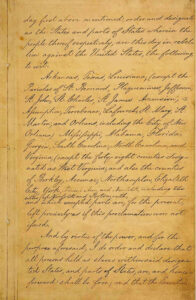 day first above mentioned, order and designate
as the States and parts of States wherein the
people thereof respectively, are this day in rebel-
lion against the United States, the following,
to wit:
Arkansas, Texas, Louisiana, (except the
Parishes of St. Bernard, Plaquemines, Jefferson,
St. John, St. Charles, St. James, Ascension,
Assumption, Terrebonne, Lafourche, St. Mary, St.
Martin, and Orleans, including the City of New
Orleans) Mississippi, Alabama, Florida,
Georgia, South Carolina, North Carolina, and
Virginia, (except the forty-eight counties desig-
nated as West Virginia, and also the counties
of Berkley, Accomac, Northampton, Elizabeth
City, York, Princess Ann, and Norfolk, including the
cities of Norfolk and Portsmouth
and which excepted parts are, for the present,
left precisely as if this proclamation were not
issued.
And by virtue of the power, and for the
purpose aforesaid, I do order and declare that
all persons held as slaves within said designa-
ted States, and parts of States, are, and hence-
forward shall be free; and that the Executive